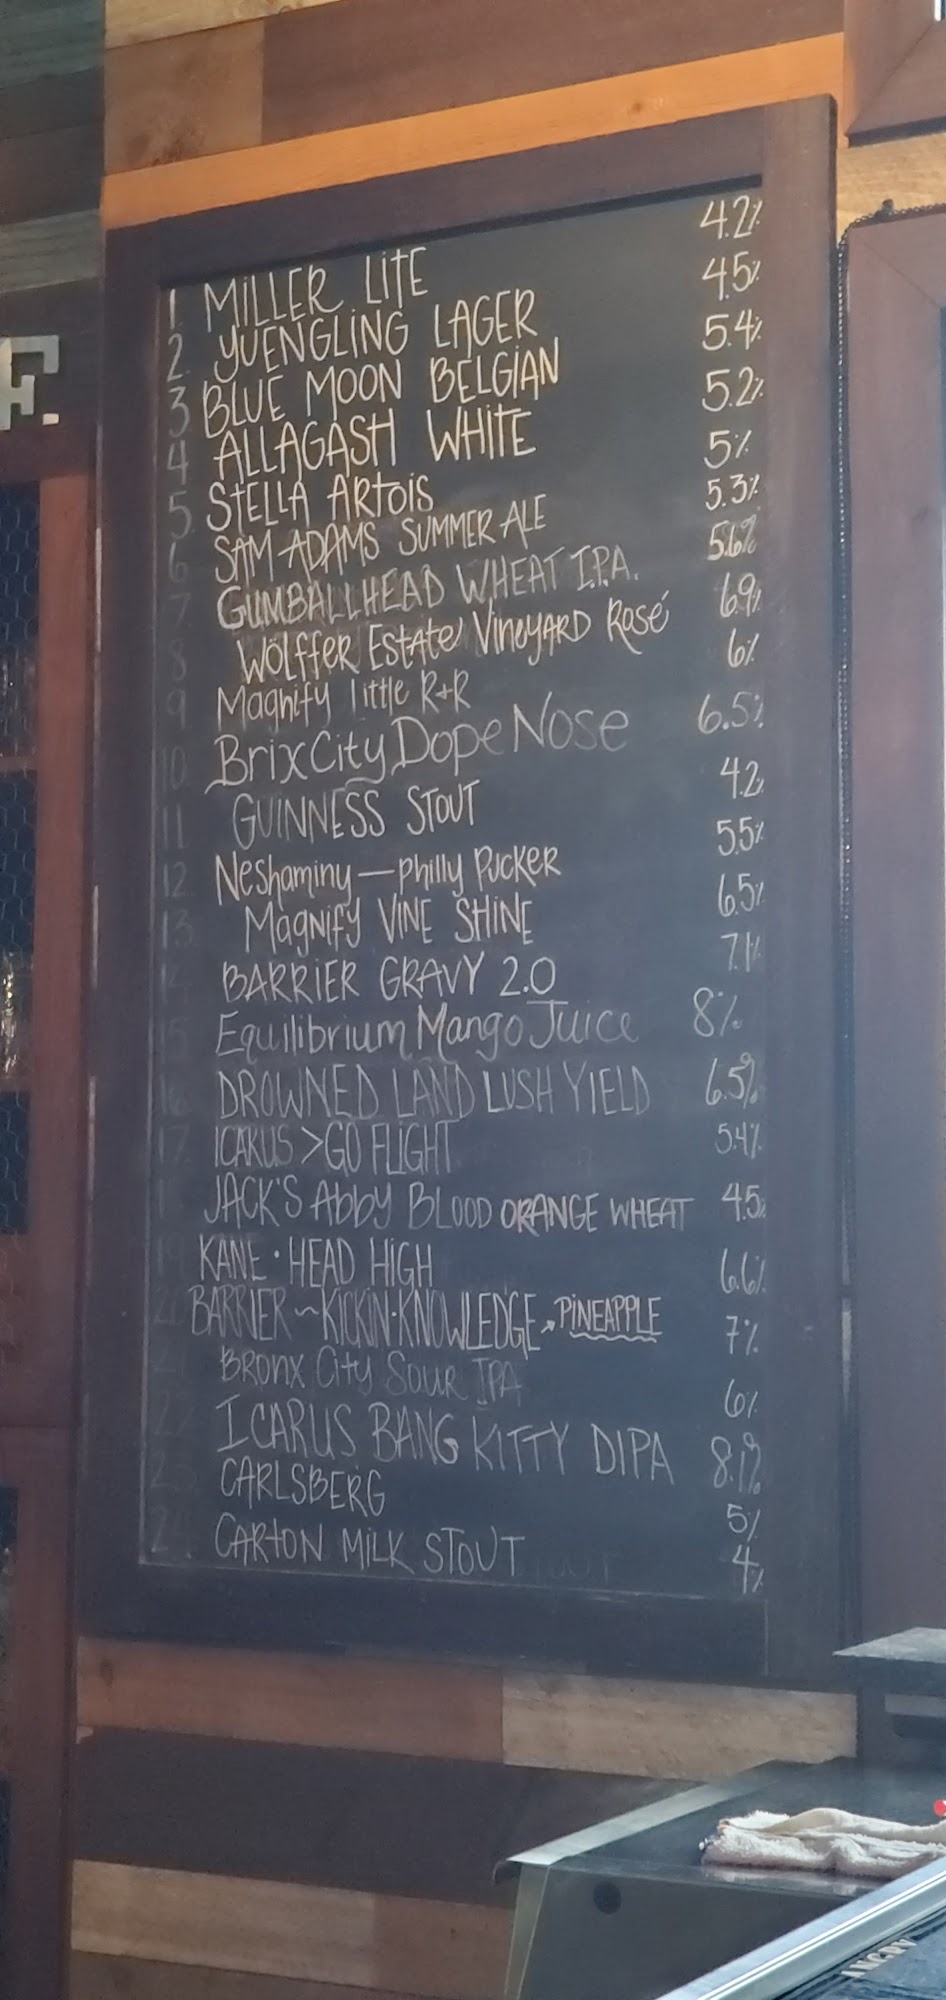 F.
1. MiLLER LiTE 4.2%
2. YUENGLiNG LAGER 4.5%
3 BLUE MOON BELGiAN 5.4%
4 ALLAGASH WHiTE 5.2%
5 STELLA ARTOiS 5%
6 SAM ADAMS SUMMER ALE 5.3%
7. GUMBALLHEAD WHEAT I.P.A. 5.6%
8 WÖLFFER ESTATE VINEYARD Rosé 6.9%
9 Magnify Little R+R 6%
10 BrixCity Dope Nose 6.5%
11 GUINNESS STOUT 4.2%
12 Neshaminy — Philly PUCKER 5.5%
13 Magnify VINE SHINE 6.5%
BARRIER GRAVY 2.0 7.1%
15 Equilibrium Mango Juice 8%
16 DROWNED LAND LUSH YIELD 6.5%
17. ICARUS > GO FLIGHT 5.4%
JACK'S Abby BLOOD ORANGE WHEAT 4.5%
19 KANE · HEAD HIGH 6.6%
20 BARRIER ~ KICKIN·KNOWLEDGE → PINEAPPLE 7%
21 BRONX City SOUR IPA 6%
22 ICARUS BANG KITTY DIPA 8.1%
23 CARLSBERG 5%
24 CARTON MILK STOUT 4%